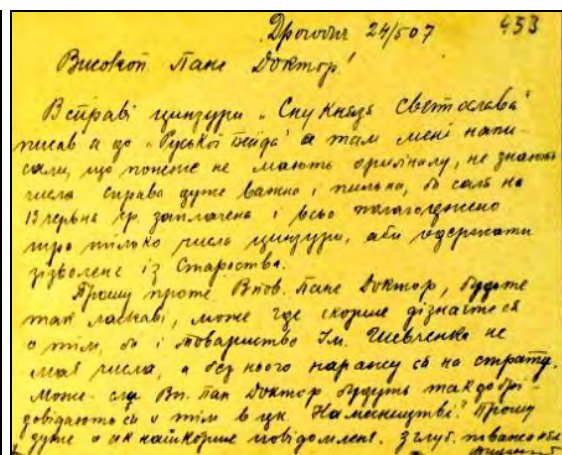 Дрогобич 24/5 07 433
Високоп. Пане Доктор!
В справі цензури „Сну Князя Святослава"
писав я до „Руської Бесіди" а там мені напи-
сали, що понеже не мають оригіналу, не знають
числа справа дуже важна і пильна, бо саля на
13 червня ср. заплачена і всьо полагоджено
про тілько числа цензури, аби одержати
зізволенє із Староства.
Прошу проте Впов. Пане Доктор, будьте
так ласкаві, може где скорше дізнаєте ся
о тім, бо і Товариство Ім. Шевченка не
має числа, а без нього наражу ся на страту.
Може слу Вп. Пан Доктор будуть так добрі
довідають ся о тім в цк. Намісництві? Прошу
дуже о як найскорше повідомленє. З глуб. поважанєм